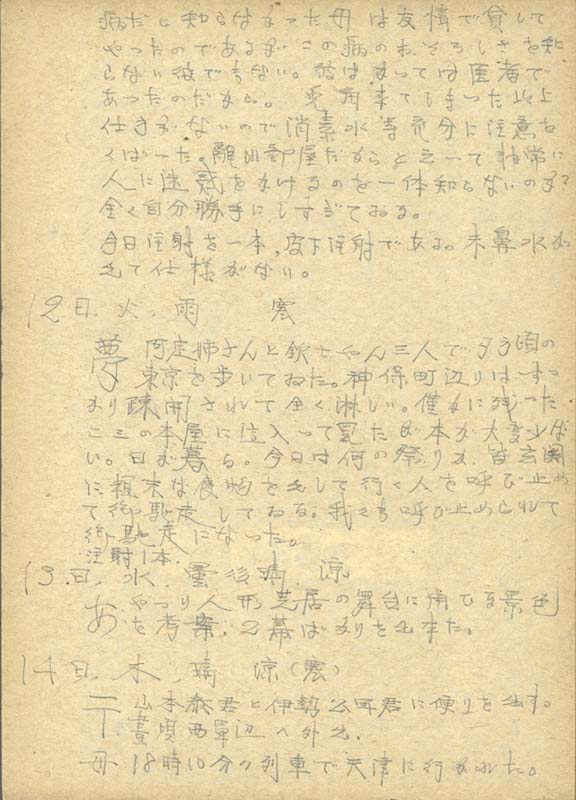 病だと知らなかった母は友情で貸して
やったのであるが この病のおそろしさを知
らない彼でもない。彼はかっては医者で
あったのだから。 兎角来てしまった以上
仕方がないので消素水等充分に注意を
くばった。離れ部屋だからと云って非常に
人に迷惑をかけるのを一体知らないのか?
全く自分勝手にしすぎてゐる。
今日注射を一本、皮下注射である。未鼻水が
出て仕様がない。
12日. 火. 雨 寒
夢 阿定姉さんと欽ちやん三人で夕方頃の
東京を歩いてゐた。神保町辺りはすっ
かり疎開されて全く淋しい。僅かに残った
二三の本屋に立入って見たが本が大変少な
い。日が暮る。今日は何の祭りか、皆玄関
に粗末な食物を出して行く人を呼び止め
て御馳走してゐる。我々も呼び止められて
御馳走になった。
注射1本.
13.日. 水. 曇後晴. 涼
あやつり人形芝居の舞台に用ひる景色
を考案、2幕ばかりを出来た。
14日. 木. 晴 涼(寒)
山本泰君と伊勢公司君に便りを出す。
昼頃西単辺へ外出.
母 18時10分の列車で天津に行かれた。